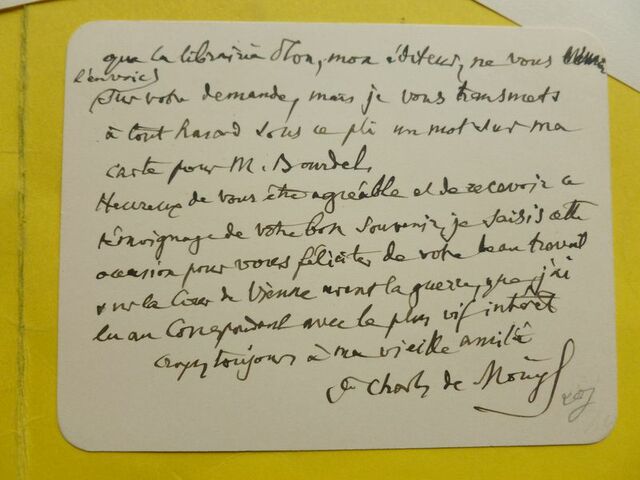 que la librairie Plon, mon éditeur, ne vous
l'envoie
sur votre demande, mais je vous transmets
à tout hasard sous ce pli un mot sur ma
carte pour M. Bourdel.
Heureux de vous être agréable et de recevoir ce
témoignage de votre bon souvenir, je saisis cette
occasion pour vous féliciter de votre beau travail
sur la Cour de Vienne avant la guerre, que j'ai
lu au Correspondant avec le plus vif intérêt
croyez toujours à ma vieille amitié
Charles de Moüy